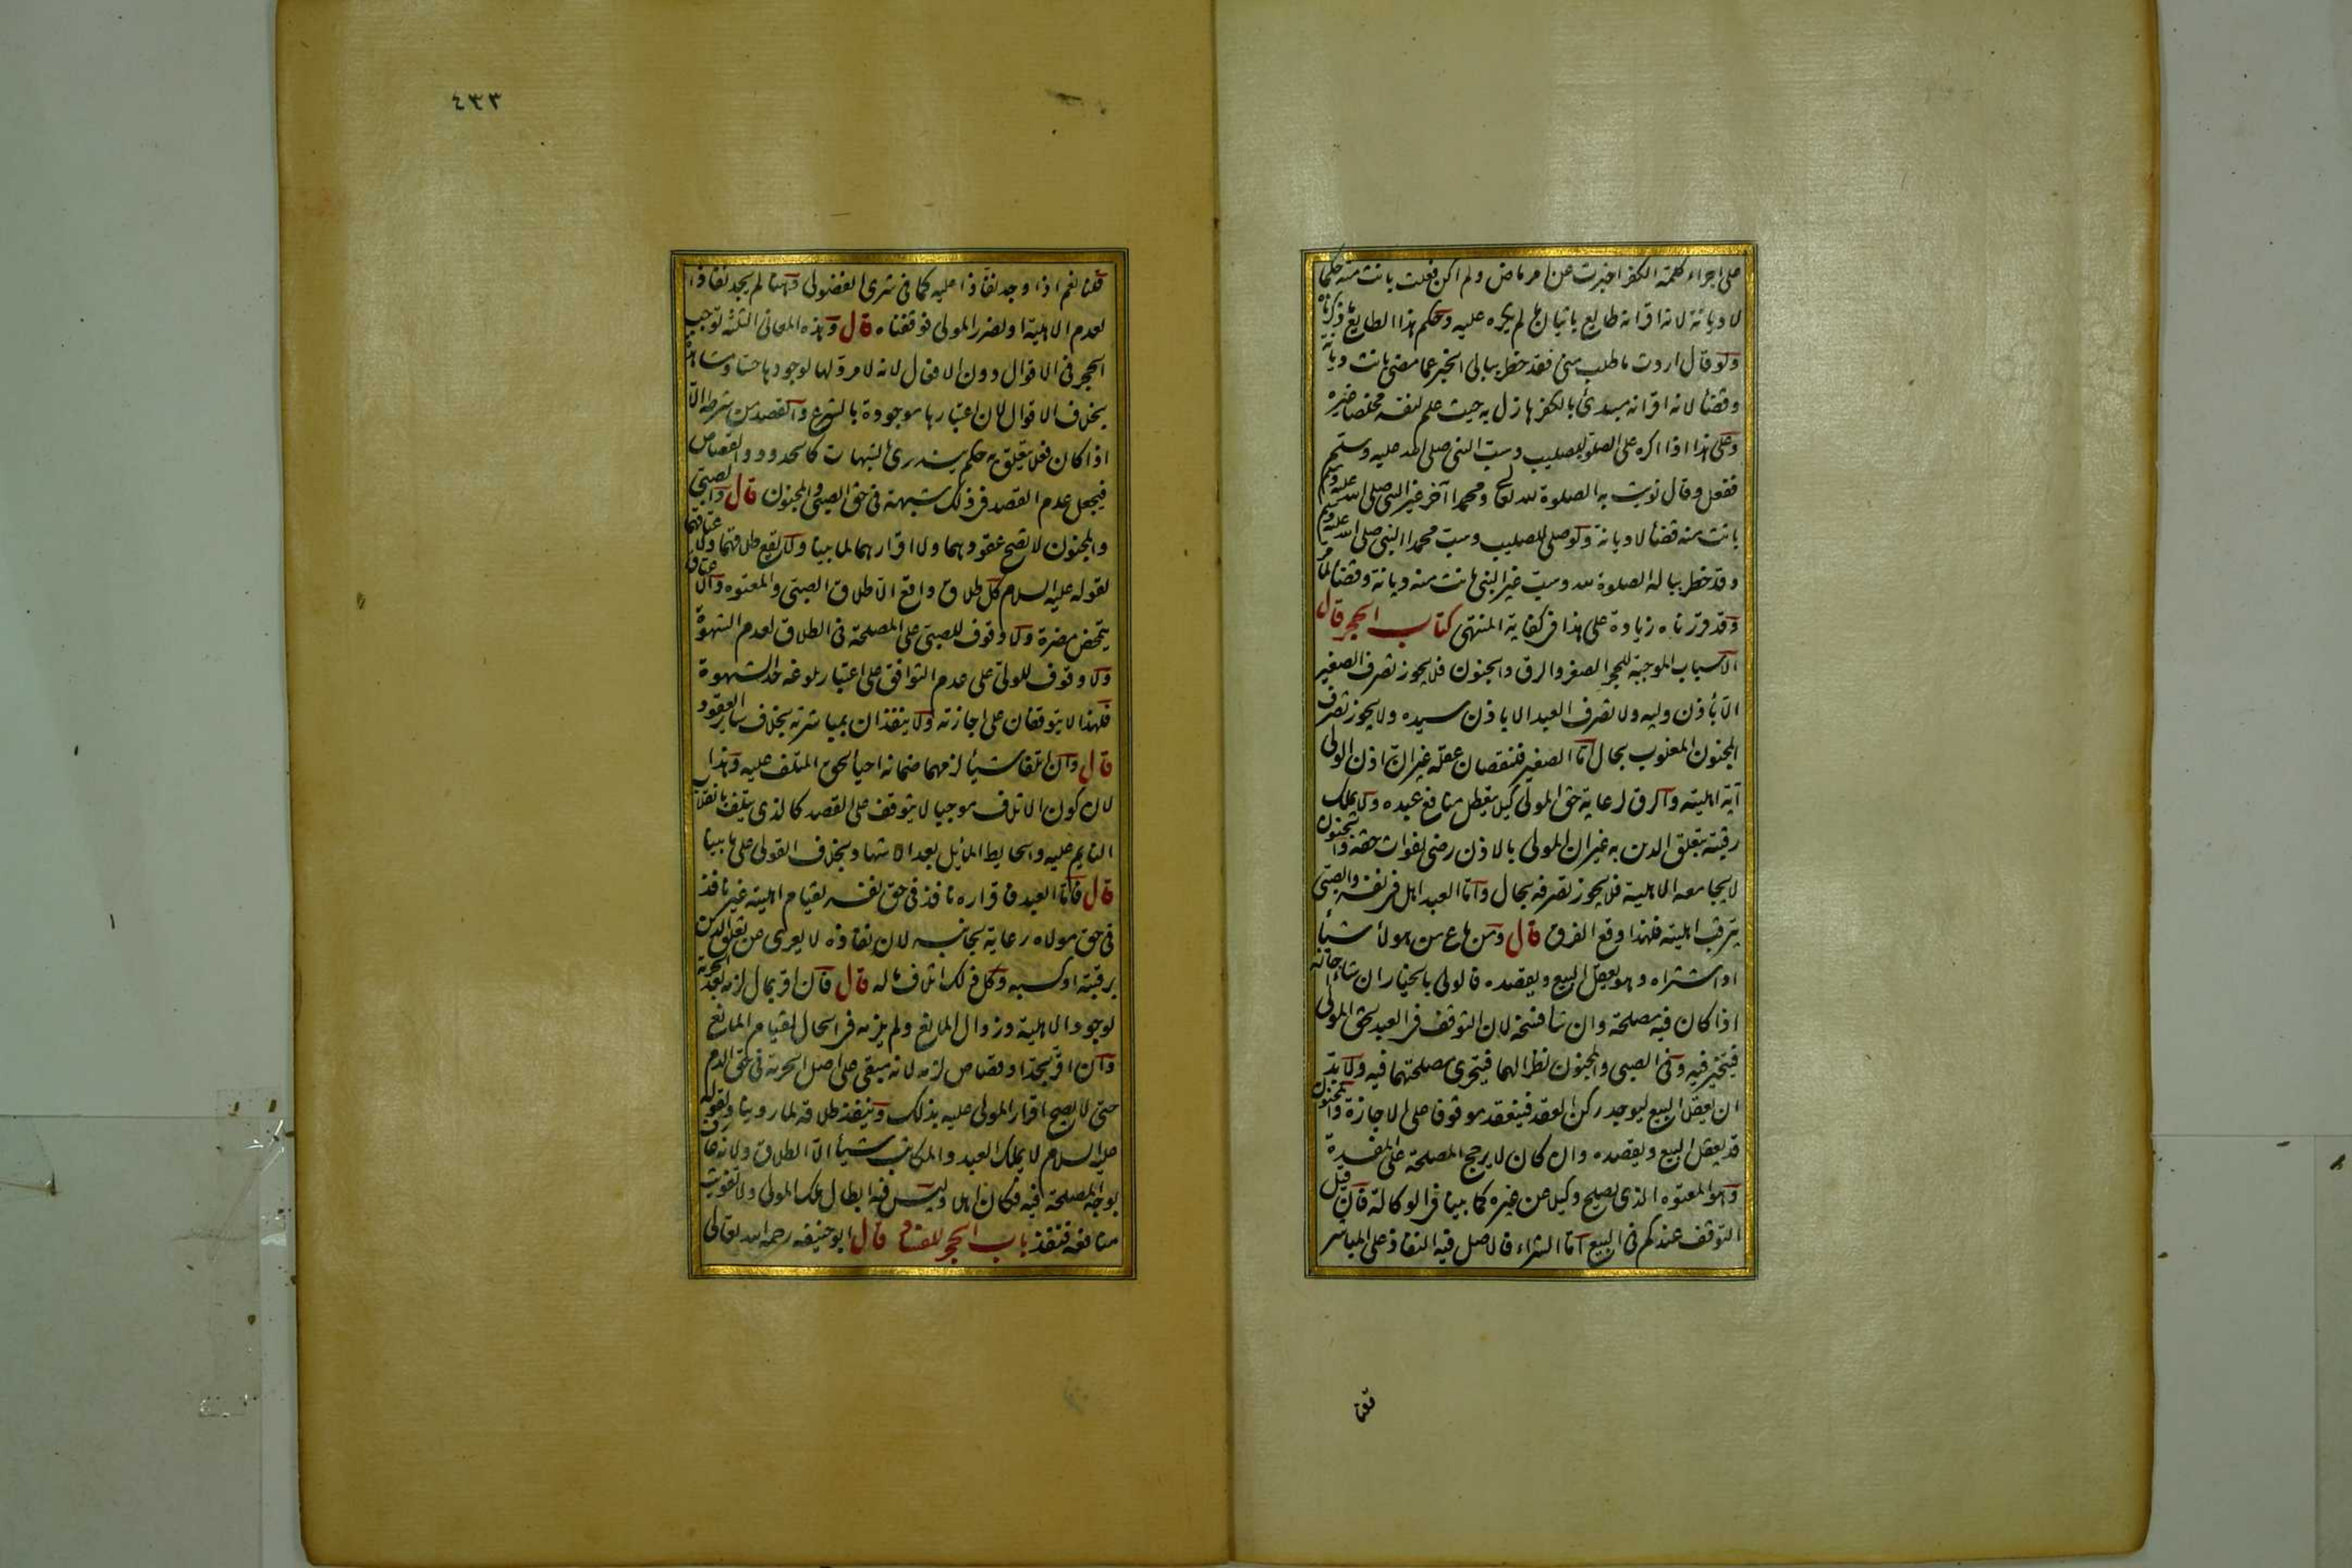 على اجراء كلمة الكفر اخبرت عن امر ماض ولم اكن فعلت بانت منه حكما
لا ديانة لانه اقر انه طايع باتيان ما لم يكره عليه وحكم هذا الطايع ما ذكرناه
ولو قال اردت ما طلب منى وقد خطر ببالى الخبر عما مضى بانت ديانة
وقضا لانه اقر انه مبتدئ بالكفر هازل به حيث علم لنفسه مخلصا غيره
وعلى هذا اذا اكره على الصلوة للصليب وسب النبى صلى الله عليه وسلم
ففعل وقال نويت به الصلوة لله تعالى ومحمدا آخر غير النبى صلى الله عليه وسلم
بانت منه قضا لا ديانة ولو صلى للصليب وسب محمدا النبى صلى الله عليه وسلم
وقد خطر بباله الصلوة لله وسب غير النبى بانت منه ديانة وقضا لما مر
وقد قررناه زيادة على هذا فى كفاية المنتهى كتاب الحجر قال
الاسباب الموجبة للحجر الصغر والرق والجنون فلا يجوز تصرف الصغير
الا بأذن وليه ولا تصرف العبد الا باذن سيده ولا يجوز تصرف
المجنون المغلوب بحال اما الصغير فلنقصان عقله غير ان اذن الولى
آية اهليته والرق لرعاية حق المولى كيلا يتعطل منافع عبده ولا يملك
رقبته بتعلق الدين به غير ان المولى بالاذن رضى لفوات حقه والجنون
لا يجامعه الاهلية فلا يجوز تصرفه بحال واما العبد اهل فى نفسه والصبى
يترقب اهليته فلهذا وقع الفرق قال ومن باع من هؤلاء شيأ
او اشتراه وهو يعقل البيع ويقصده فالولى بالخيار ان شاء اجازه
اذا كان فيه مصلحة وان شا فسخه لان التوقف فى العبد لحق المولى
فيتخير فيه وفى الصبى والمجنون نظرا لهما فيتحرى مصلحتهما فيه ولا بد
ان يعقل البيع ليوجد ركن العقد فينعقد موقوفا على الاجازة والمجنون
قد يعقل البيع ويقصده وان كان لا يرجح المصلحة على المفسدة
وهو المعتوه الذى يصلح وكيلا عن غيره كما بينا فى الوكالة فان قيل
التوقف عندكم فى البيع اما الشراء فالاصل فيه النفاذ على المباشر
قلنا
٤٣٣
قلنا نعم اذا وجد نفاذا عليه كما فى شرى الفضولى وههنا لم يجد نفاذا
لعدم الاهلية او لضرر المولى فوقفناه قال وهذه المعانى الثلثة توجب
الحجر فى الاقوال دون الافعال لانه لا مرد لها لوجودها حسا ومشاهدة
بخلاف الاقوال لان اعتبارها موجودة بالشرع والقصد من شرطه الا
اذا كان فعلا يتعلق به حكم يندرئ بالشبهات كالحدود والقصاص
فيجعل عدم القصد فى ذلك شبهة فى حق الصبى والمجنون قال والصبى
والمجنون لا يصح عقودهما ولا اقرارهما لما بينا ولا يقع طلاقهما ولا عتاقهما
لقوله عليه السلام كل طلاق واقع الا طلاق الصبى والمعتوه والاعتاق
يتمحض مضرة ولا وقوف للصبى على المصلحة فى الطلاق لعدم الشهوة
ولا وقوف للولى على عدم التوافق على اعتبار بلوغه حد الشهوة
فلهذا لا يتوقفان على اجازته ولا ينفذان بمباشرته بخلاف ساير العقود
قال وان اتلفا شيأ لزمهما ضمانه احيا لحق المتلف عليه وهذا
لان كون الاتلاف موجبا لا يتوقف على القصد كالذى يتلف بانقلاب
النايم عليه والحايط المايل بعد الاشهاد بخلاف القولى على ما بينا
قال فاما العبد فاقراره نافذ فى حق نفسه لقيام اهليته غير نافذ
فى حق مولاه رعاية لجانبه لان نفاذه لا يعرى عن تعلق الدين
برقبته او كسبه وكل ذلك اتلاف ماله قال فان اقر بمال لزمه بعد الحرية
لوجود الاهلية وزوال المانع ولم يلزمه فى الحال لقيام المانع
وان اقر بحد او قصاص لزمه لانه مبقى على اصل الحرية فى حق الدم
حتى لا يصح اقرار المولى عليه بذلك وينفذ طلاقه لما روينا ولقوله
عليه السلام لا يملك العبد والمكاتب شيأ الا الطلاق ولانه عارف
بوجه المصلحة فيه فكان اهلا وليس فيه ابطال ملك المولى ولا تفويت
منافعه فينفذ باب الحجر للفساد قال ابو حنيفة رحمه الله تعالى